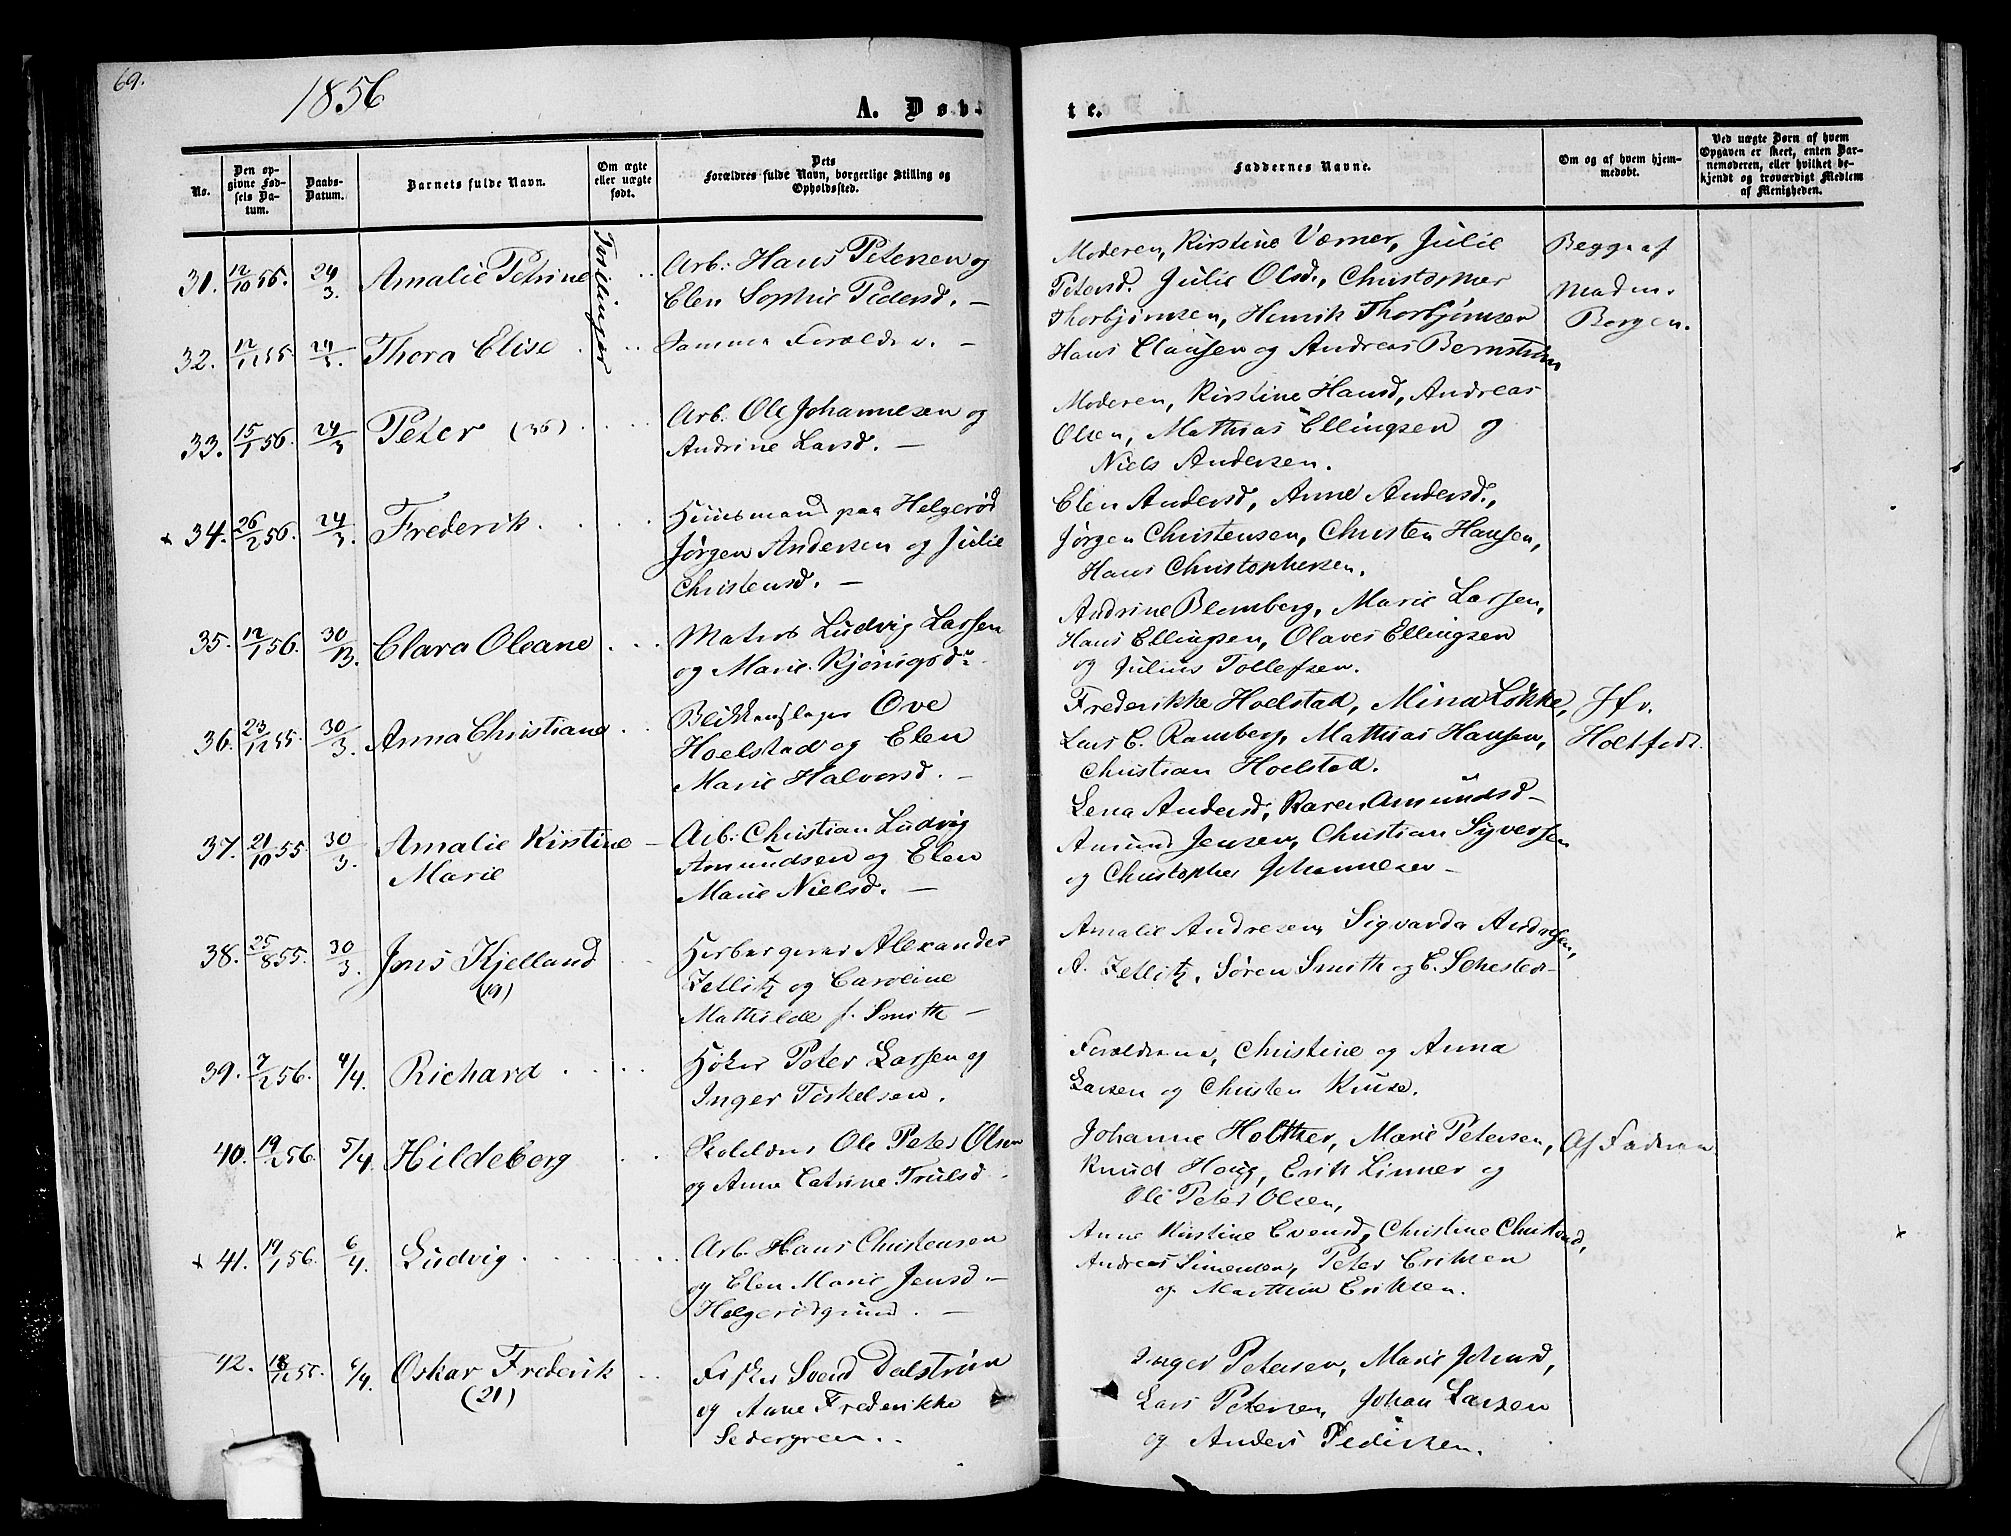 69.
1856
A. Døb-
te.
No.
Den op-
givne Fød-
sels Da-
tum.
Daabs-
Datum.
Barnets fulde Navn.
Om ægte
eller uægte
født.
Dets
Forældres fulde Navn, borgerlige Stilling og
Opholdssted.
Faddernes Navne.
Om og af hvem hjem-
medøbt.
Ved uægte Børn af hvem
Opgaven er skeet, enten Bar-
nemoderen, eller hvilket be-
kjendt og troværdigt Medlem
af Menigheden.
Tvillinger
31. 12/10 55. 24/3. Amalie Petrine
Arb: Hans Petersen og
Elen Sophie Pedersd. —
Moderen, Kirstine Værner, Julie
Petersd. Julie Olsd., Christopher
Thorbjørnsen, Henrik Thorbjørnsen
Begge af
Madm.
Borgen.
32. 24/3. Thora Elise
Samme Forældre. —
Hans Clausen og Andreas Bernstrøm
33. 15/1 56. 24/3 Peter (36)
Arb. Ole Johannesen og
Andrine Larsd. —
Moderen, Kirstine Hansd, Andreas
Olsen, Mathias Ellingsen og
Niels Andersen.
34. 26/2 56. 24/3. Frederik.
Huusmand paa Helgerød
Jørgen Andersen og Julie
Christensd. —
Elen Andersd, Anne Andersd.,
Jørgen Christensen, Christen Hansen,
Hans Christophersen.
35. 12/1 56. 30/3. Clara Oleane
Matros Ludvig Larsen
og Marie
Andrine Blomberg, Marie Larsen,
Hans Ellingsen, Olaves Ellingsen
og Julius Tollefsen.
36. 23/12 55. 30/3. Anna Christiane
Blikkenslager Ove
Hoelstad og Elen
Marie Halvorsd. —
Frederikke Hoelstad, Mina Løkke,
Lars C. Ramberg, Mathias Hansen,
Christian Hoelstad.
Jfr.
Holtfodt.
37. 21/10 55. 30/3. Amalie Kirstine
Marie
Arb: Christian Ludvig
Amundsen og Elen
Marie Nielsd. —
Lena Andersd, Karen Amundsd —
Amund Jensen, Christian Syversen
og Christopher Johannesen —
38. 25/8 55. 30/3. Jens Kjelland
(19)
Herbergerer Alexander
Zetlitz og Caroline
Mathilde f. Smith —
Amalie Andresen, Sigvarda Andresen,
A. Zetlitz, Søren Smith og E. Sehested —
39. 7/2 56. 4/4. Richard
Høker Peter Larsen og
Inger Torkelsen.
Forældrene, Christine og Anna
Larsen og Christen Kruse.
40. 19/2 56. 5/4. Hildeborg
Ole Peter Olsen
og Anne Catrine Trulsd.
Johanne Holther, Marie Petersen,
Knud Houg, Erik Linner og
Ole Peter Olsen,
Af Faderen
41. 19/1 56. 6/4. Ludvig
Arb. Hans Christensen
og Elen Marie Jensd. —
Helgerødgrund. —
Anne Kirstine Evensd, Christine Christensd,
Andreas Simensen, Peter Eriksen
og Matthias Eriksen.
42. 6/4. Oskar Frederik
(21)
Fisker Svend Dalstrøm
og Anne Frederikke
Sedergreen.
Inger Petersen, Marie Johnsd,
Lars Petersen, Johan Larsen
og Anders Pedersen.